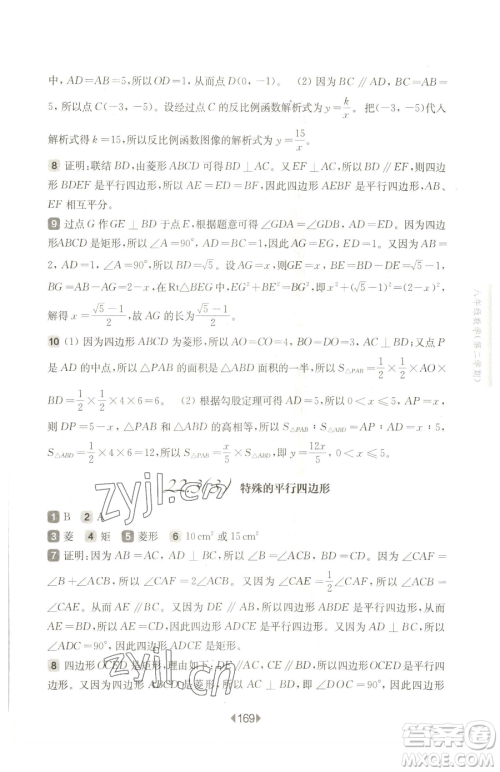 中，AD=AB=5，所以 OD=1，从而点 D(0，-1)。 (2) 因为 BC∥AD，BC=AD=
5，所以点 C(-3，-5)。设经过点 C 的反比例函数解析式为 y=k/x。把(-3，-5)代入
解析式得 k=15，所以反比例函数图像的解析式为 y=15/x。
8 证明：联结 BD，由菱形 ABCD 可得 BD⊥AC。又因为 EF⊥AC，所以 BD∥EF，则四边
形 BDEF 是平行四边形，所以 AE=ED=BF，因此四边形 AEBF 是平行四边形，AB、
EF 相互平分。
9 过点 G 作 GE⊥BD 于点 E，根据题意可得∠GDA=∠GDE，AD=DE。因为四边
形ABCD 是矩形，所以∠A=90°，AD=BC=1，AG=GE，GE⊥BD。因为 AB=
2，AD=1，∠A=90°，所以 BD=√5。设 AG=x，则 GE=x，BE=BD-DE=√5-1，
BG=2-x，在 Rt△BEG 中，EG²+BE²=BG²，即 x²+(√5-1)²=(2-x)²，解得 x=
(√5-1)/2，故 AG 的长为(√5-1)/2。
10 (1) 因为四边形 ABCD 为菱形，所以 AC⊥BD，AO=OC=4，BO=DO=3。因为点
P 是 AD 的中点，所以△PAB 的面积是△ABD 面积的一半，所以 S△PAB=1/2×1/2×AO×
BD=1/2×1/2×4×6=6。 (2) 根据勾股定理可得 AD=5，根据题意可得 AP=x，则
DP=5-x，S△ABD=1/2×6×4=12。因为 S△PAB：S△ABD=AP：AD，所以 S△PAB：
S△ABD=1/2×4×6=12，所以 S△PAB：S△ABD=x/5，所以 S△PAB=x/5×S△ABD，即 y=12x/5。
22.3(3) 特殊的平行四边形
1 B 2 A
3 菱 4 矩 5 菱形 6 10 cm² 或 15 cm²
7 证明：因为 AB=AC，AD⊥BC，所以 BD=CD。因为 AE 平分∠CAF，∠CAF=
∠B+∠ACB，所以∠CAF=2∠B，因为∠CAE=1/2∠CAF，所以∠CAE=∠B=
∠CAE。又因为 AE∥BC，DE∥AB，所以四边形 ABDE 是平行四边形，所以
AE=BD，AE=CD。又因为 AE∥DC，所以四边形 ADCE 是平行四边形。又因为
∠ADC=90°，因此四边形 ADCE 是矩形。
8 四边形 OCED 是矩形，理由如下：因为 DE∥AC，CE∥BD，所以四边形 OCED 是平行四边
形。又因为四边形 ABCD 是菱形，所以 AC⊥BD，即∠DOC=90°，因此四边形 OCED 是矩形
169
八年级数学(第二学期)